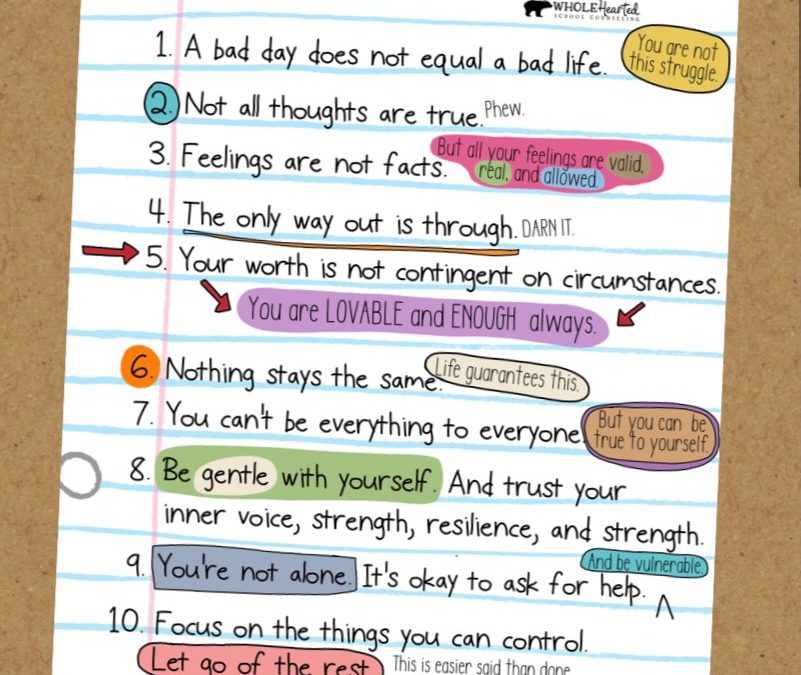 WHOLEHearted
SCHOOL COUNSELING
1. A bad day does not equal a bad life.
You are not
this struggle.
2. Not all thoughts are true. Phew.
3. Feelings are not facts.
But all your feelings are valid,
real, and allowed.
4. The only way out is through. DARN IT.
5. Your worth is not contingent on circumstances.
You are LOVABLE and ENOUGH always.
6. Nothing stays the same.
Life guarantees this.
7. You can't be everything to everyone.
But you can be
true to yourself.
8. Be gentle with yourself. And trust your
inner voice, strength, resilience, and strength.
And be vulnerable.
9. You're not alone. It's okay to ask for help.
10. Focus on the things you can control.
Let go of the rest
This is easier said than done